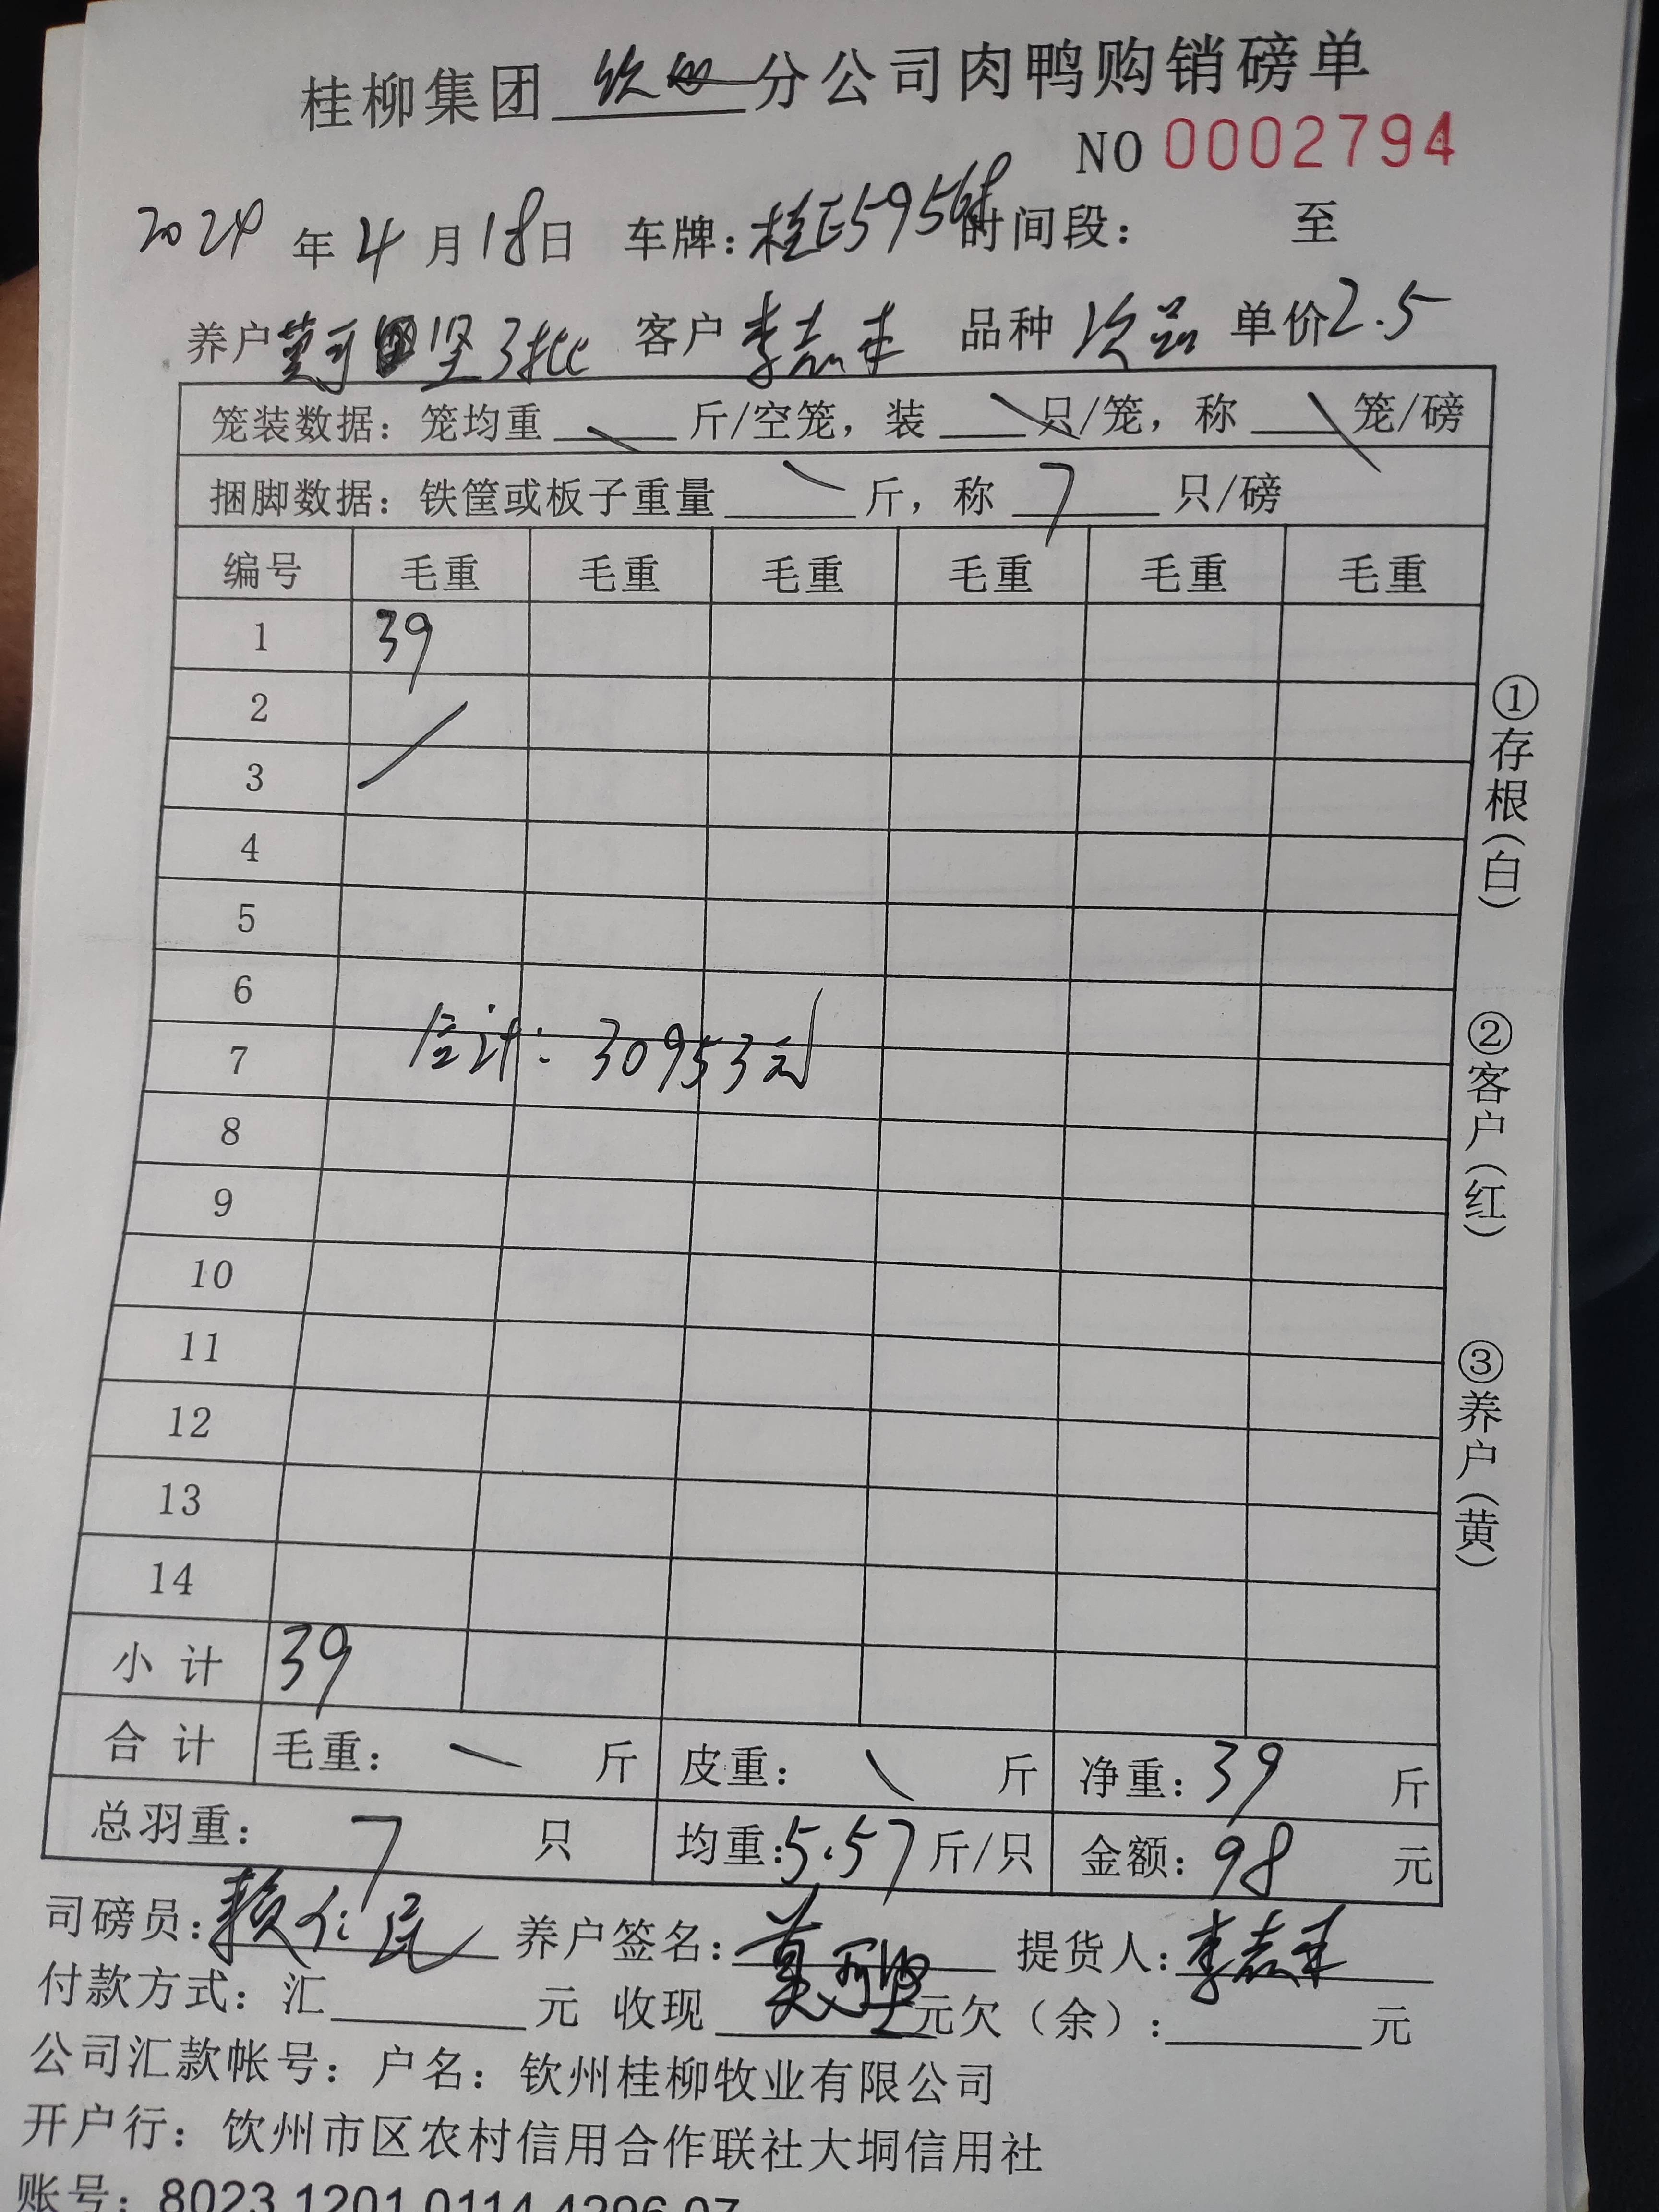 桂柳集团 钦州 分公司肉鸭购销磅单
NO 0002794
2024 年 4 月 18 日 车牌：桂E59568 时间段： 至
养户 莫 坚 3批 客户 李志 品种 次品 单价 2.5
笼装数据：笼均重 斤/空笼，装 只/笼，称 笼/磅
捆脚数据：铁筐或板子重量 斤，称 7 只/磅
编号 毛重 毛重 毛重 毛重 毛重 毛重
1 39
2
3
4
5
6
7 合计：30953元
8
9
10
11
12
13
14
小计 39
合计 毛重： 斤 皮重： 斤 净重：39 斤
总羽重： 7 只 均重：5.57 斤/只 金额：98 元
司磅员：赖仁民 养户签名：莫 坚 提货人：李志
付款方式：汇 元 收现 元欠（余）： 元
公司汇款帐号：户名：钦州桂柳牧业有限公司
开户行：钦州市区农村信用合作联社大垌信用社
账号：8023 1201 0114 4296 07
①存根（白）
②客户（红）
③养户（黄）